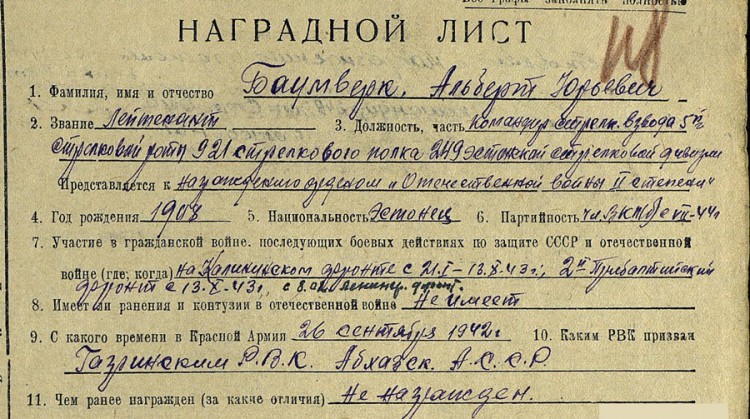 Все графы заполнять полностью
НАГРАДНОЙ ЛИСТ
1. Фамилия, имя и отчество Баумверк, Альберт Юрьевич
2. Звание Лейтенант 3. Должность, часть Командир стрелк. взвода 5й
стрелковой роты 921 стрелкового полка 249 эстонской стрелковой дивизии
Представляется к награждению орденом „Отечественной войны II степени"
4. Год рождения 1908 5. Национальность Эстонец 6. Партийность чл. ВКП/б/ с VII-44г
7. Участие в гражданской войне, последующих боевых действиях по защите СССР и отечественной
войне (где, когда) на Калининском фронте с 21.I – 13.X-43г., 2й Прибалтийский
фронт с 13.X-43г., с Ленингр. фронт.
8. Имеет ли ранения и контузии в отечественной войне Не имеет
9. С какого времени в Красной Армии 26 сентября 1942г 10. Каким РВК призван
Гагринским Р.В.К. Абхазск. А.С.С.Р.
11. Чем ранее награжден (за какие отличия) Не награжден.